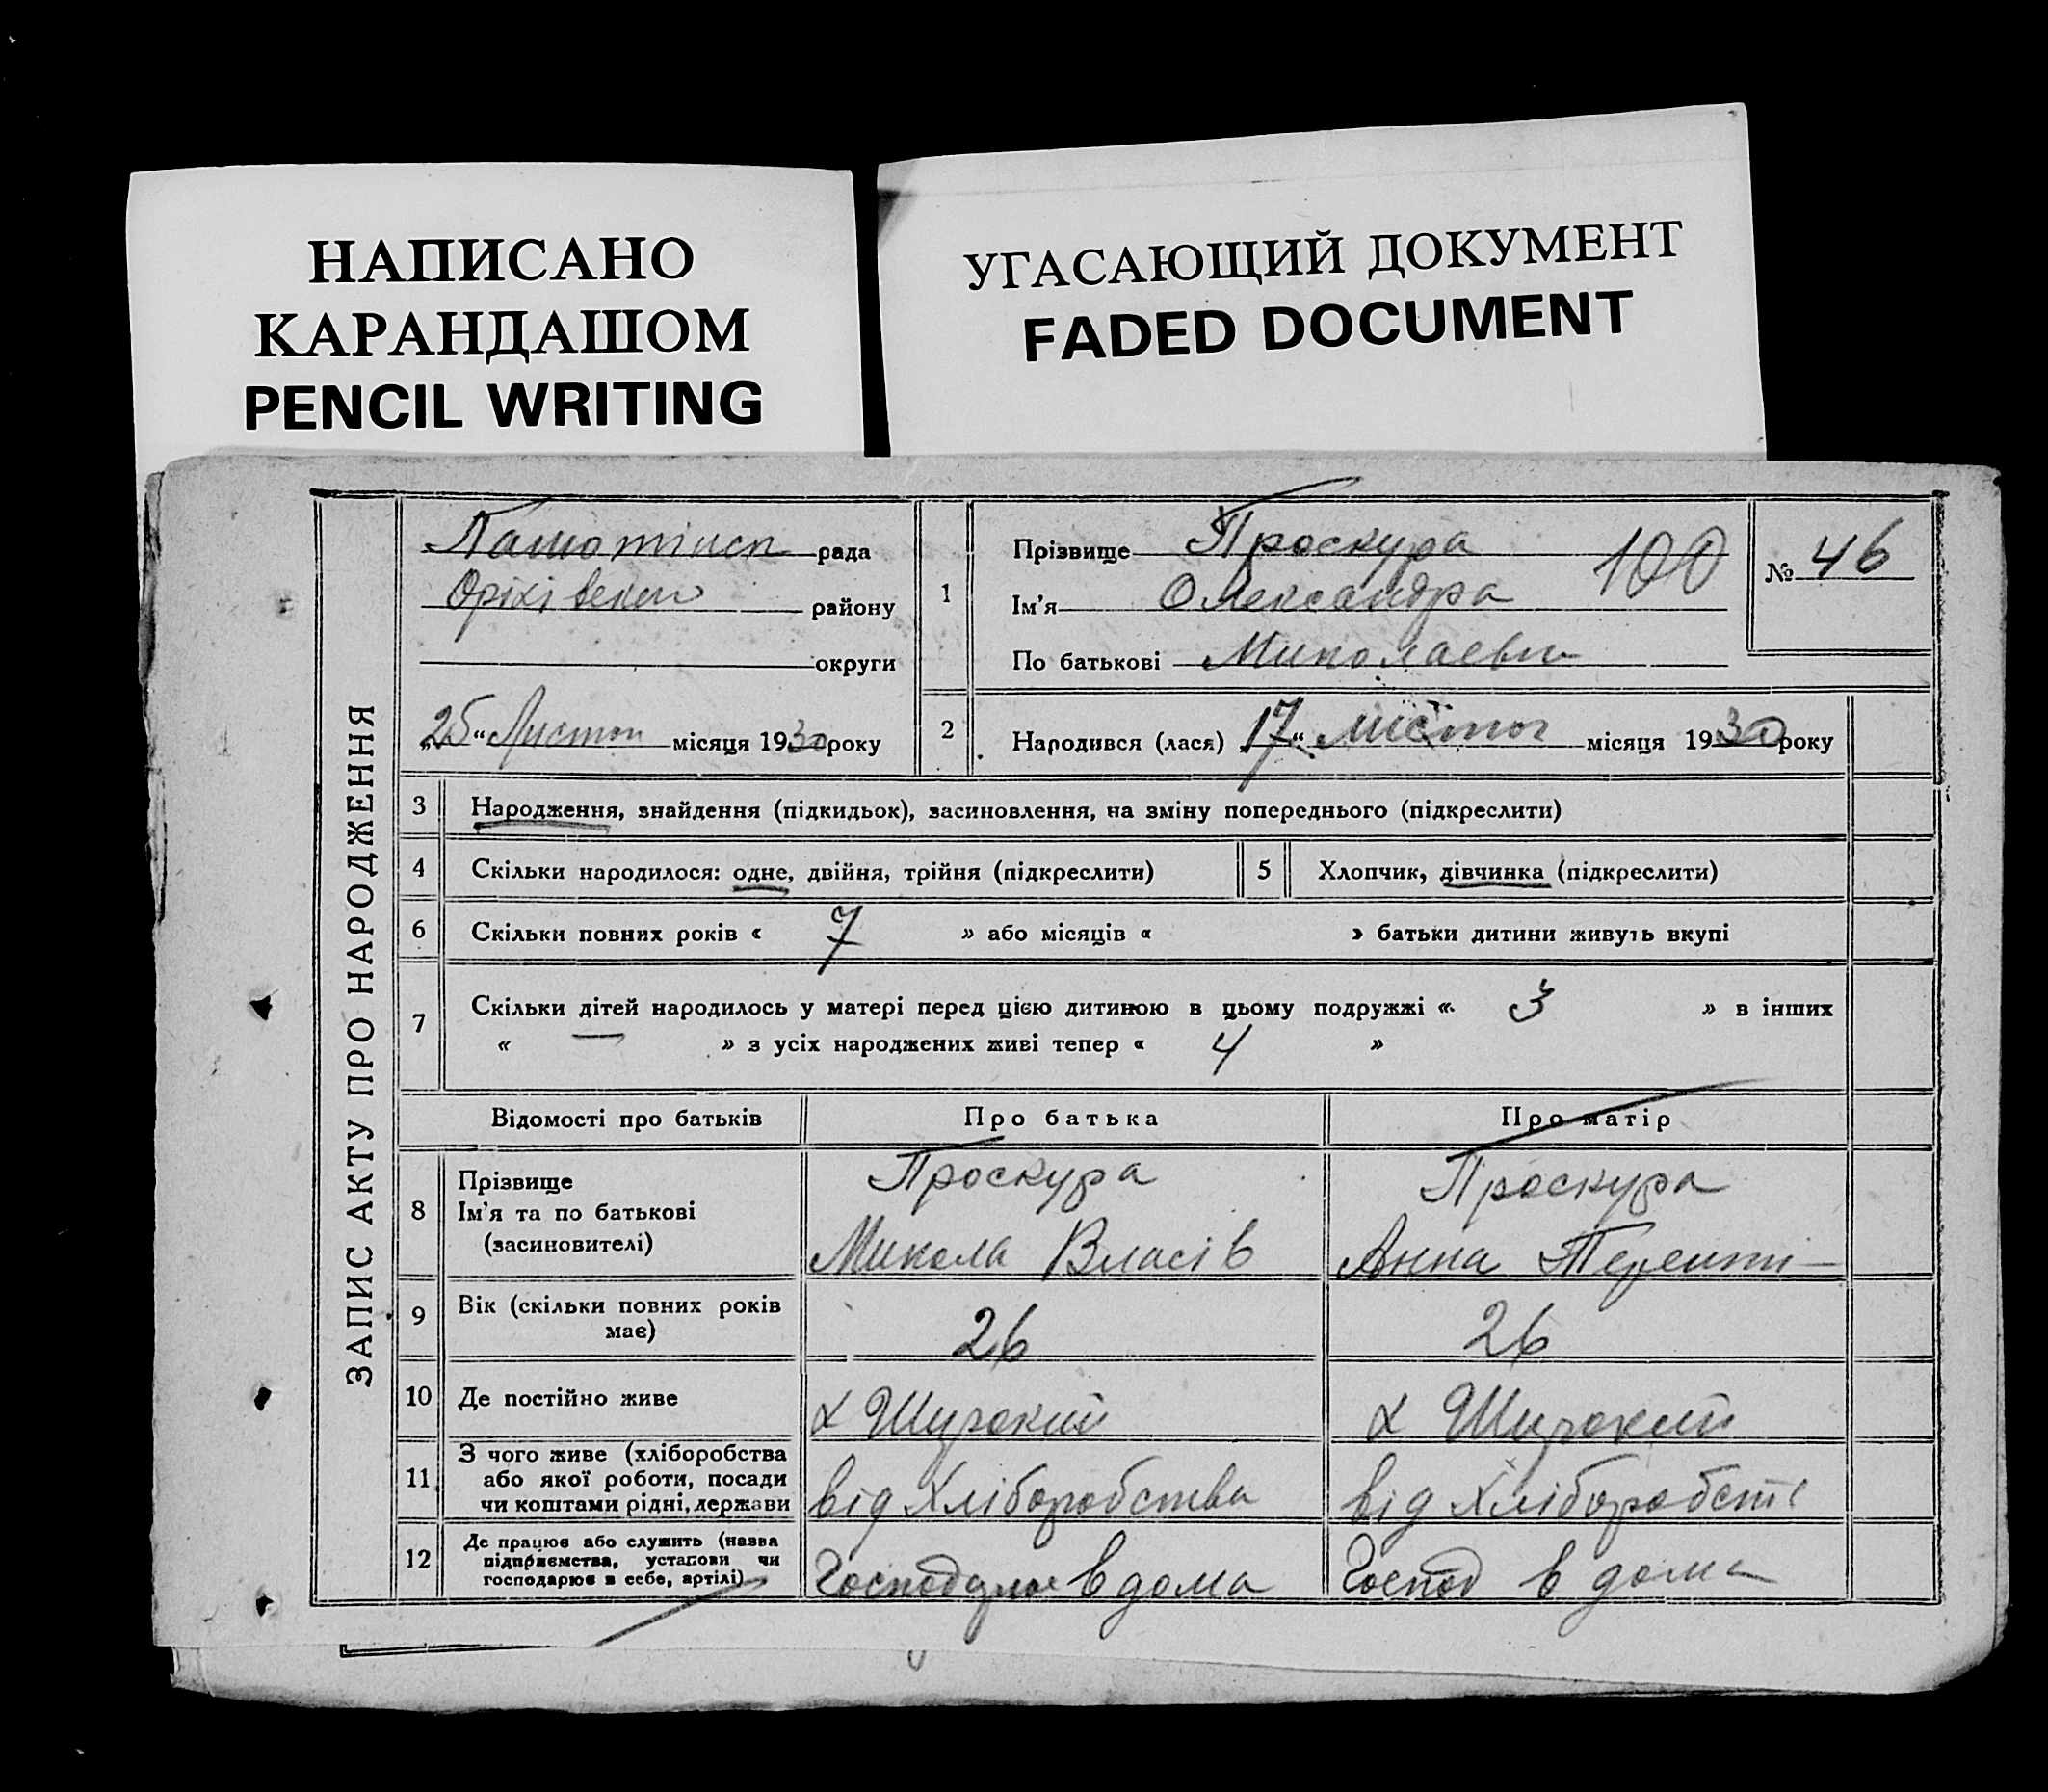 НАПИСАНО
КАРАНДАШОМ
PENCIL WRITING
УГАСАЮЩИЙ ДОКУМЕНТ
FADED DOCUMENT
ЗАПИС АКТУ ПРО НАРОДЖЕННЯ
рада
Оріхівськ району
округи
„25“ Листоп місяця 1930 року
1
Прізвище Проскура
Ім'я Олександра 100
По батькові Миколаевн
№ 46
2 Народився (лася) „17“ листоп місяця 1930 року
3 Народження, знайдення (підкидьок), засиновлення, на зміну попереднього (підкреслити)
4 Скільки народилося: одне, двійня, трійня (підкреслити) 5 Хлопчик, дівчинка (підкреслити)
6 Скільки повних років « 7 » або місяців « » батьки дитини живуть вкупі
7 Скільки дітей народилось у матері перед цією дитиною в цьому подружжі « 3 » в інших
« — » з усіх народжених живі тепер « 4 »
Відомості про батьків Про батька Про матір
8 Прізвище
Ім'я та по батькові
(засиновителі)
Проскура
Микола Власів
Проскура
Анна Теренті
9 Вік (скільки повних років
має)
26 26
10 Де постійно живе х Широкий х Широкий
11 З чого живе (хліборобства
або якої роботи, посади
чи коштами рідні, держави
від Хліборобства від Хліборобств
12 Де працює або служить (назва
підприємства, установи чи
господарює в себе, артілі)
Господарює в дома Господ в дома